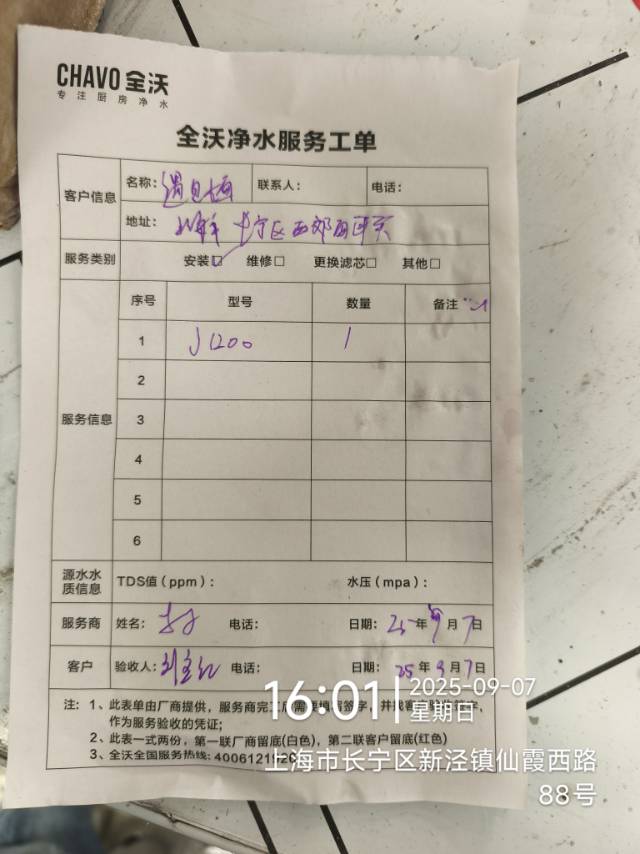 CHAVO 全沃
专注厨房净水
全沃净水服务工单
客户信息 名称: 遇见 联系人: 电话:
地址: 长宁区西郊百联
服务类别 安装☑ 维修□ 更换滤芯□ 其他□
服务信息 序号 型号 数量 备注
1 J1200 1
2
3
4
5
6
源水水质信息 TDS值（ppm）: 水压（mpa）:
服务商 姓名: 电话: 日期: 25年9月7日
客户 验收人: 电话: 日期: 25年9月7日
注: 1、此表单由厂商提供，服务商完工后需要填写签字，并找客户签字，
作为服务验收的凭证;
2、此表一式两份，第一联厂商留底(白色)，第二联客户留底(红色)
3、全沃全国服务热线:
16:01 2025-09-07
星期日
上海市长宁区新泾镇仙霞西路
88号